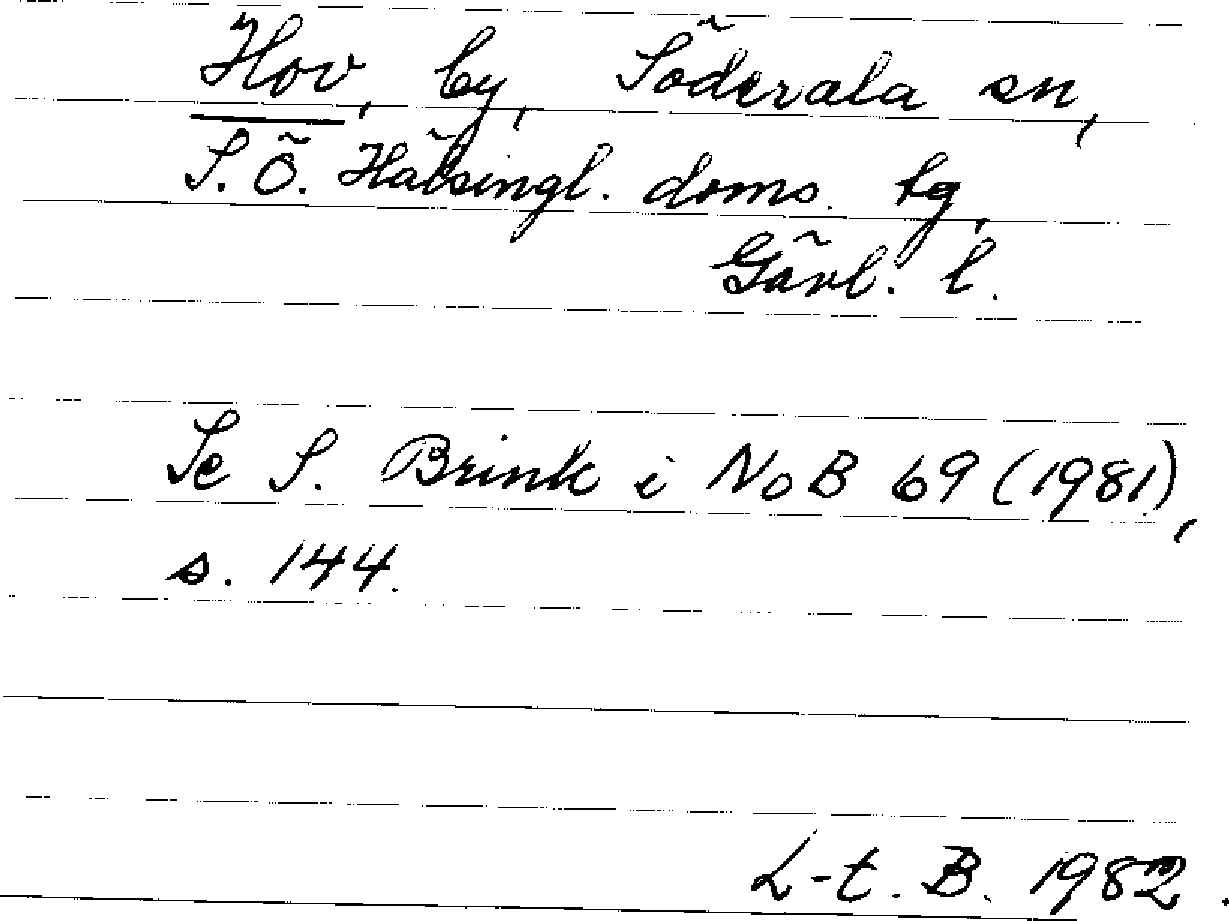 Hov, by, Söderala sn,
S. Ö. Hälsingl. doms. tg,
Gävl. l.
Se S. Brink i NoB 69 (1981),
s. 144.
L-t. B. 1982.